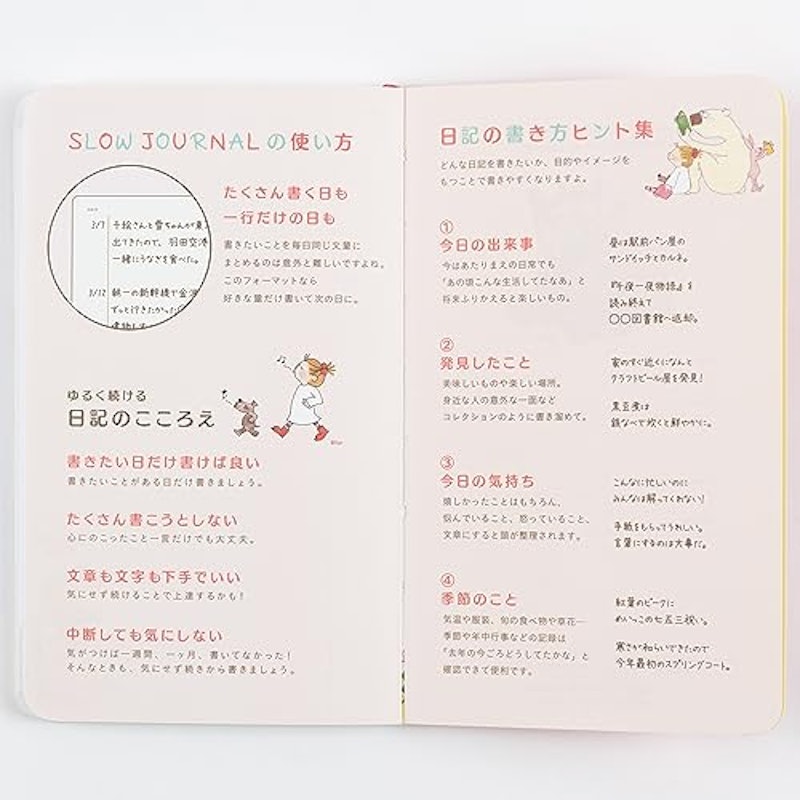 SLOW JOURNALの使い方
3/7 千絵さんと雪ちゃんが東
出てきたので、羽田空港
一緒にうなぎを食べた。
3/12 朝一の新幹線で金沢
ずっと行きたかった
建物も
たくさん書く日も
一行だけの日も
書きたいことを毎日同じ文量に
まとめるのは意外と難しいですよね。
このフォーマットなら
好きな量だけ書いて次の日に。
ゆるく続ける
日記のこころえ
書きたい日だけ書けば良い
書きたいことがある日だけ書きましょう。
たくさん書こうとしない
心にのこったこと一言だけでも大丈夫。
文章も文字も下手でいい
気にせず続けることで上達するかも!
中断しても気にしない
気がつけば一週間、一ヶ月、書いてなかった!
そんなときも、気にせず続きから書きましょう。
日記の書き方ヒント集
どんな日記を書きたいか、目的やイメージを
もつことで書きやすくなりますよ。
①
今日の出来事
今はあたりまえの日常でも
「あの頃こんな生活してたなあ」と
将来ふりかえると楽しいもの。
昼は駅前パン屋の
サンドイッチとカルネ。
『午後一夜物語』を
読み終えて
〇〇図書館へ返却。
②
発見したこと
美味しいものや楽しい場所。
身近な人の意外な一面など
コレクションのように書き溜めて。
家のすぐ近くになんと
クラフトビール屋を発見!
黒豆煮は
鉄なべで炊くと鮮やかに。
③
今日の気持ち
嬉しかったことはもちろん、
悩んでいること、怒っていること、
文章にすると頭が整理されます。
こんなに忙しいのに
みんなは解ってくれない!
手紙をもらってうれしい。
言葉にするのは大事だ。
④
季節のこと
気温や服装、旬の食べ物や草花―
季節や年中行事などの記録は
「去年の今ごろどうしてたかな」と
確認できて便利です。
紅葉のピークに
めいっこの七五三祝い。
寒さが和らいできたので
今年最初のスプリングコート。